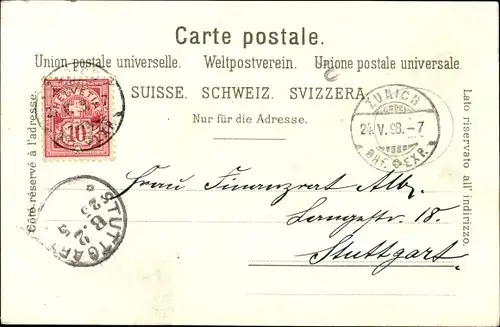 Carte postale.
Union postale universelle. Weltpostverein. Unione postale universale.
SUISSE. SCHWEIZ. SVIZZERA.
Nur für die Adresse.
Côté réservé à l'adresse.
Lato riservato all' indirizzo.
HELVETIA
10
ZÜRICH
24.V.98.-7
BRF. EXP.
STUTTGART
Frau Finanzrat Alb.
Langestr. 18.
Stuttgart.